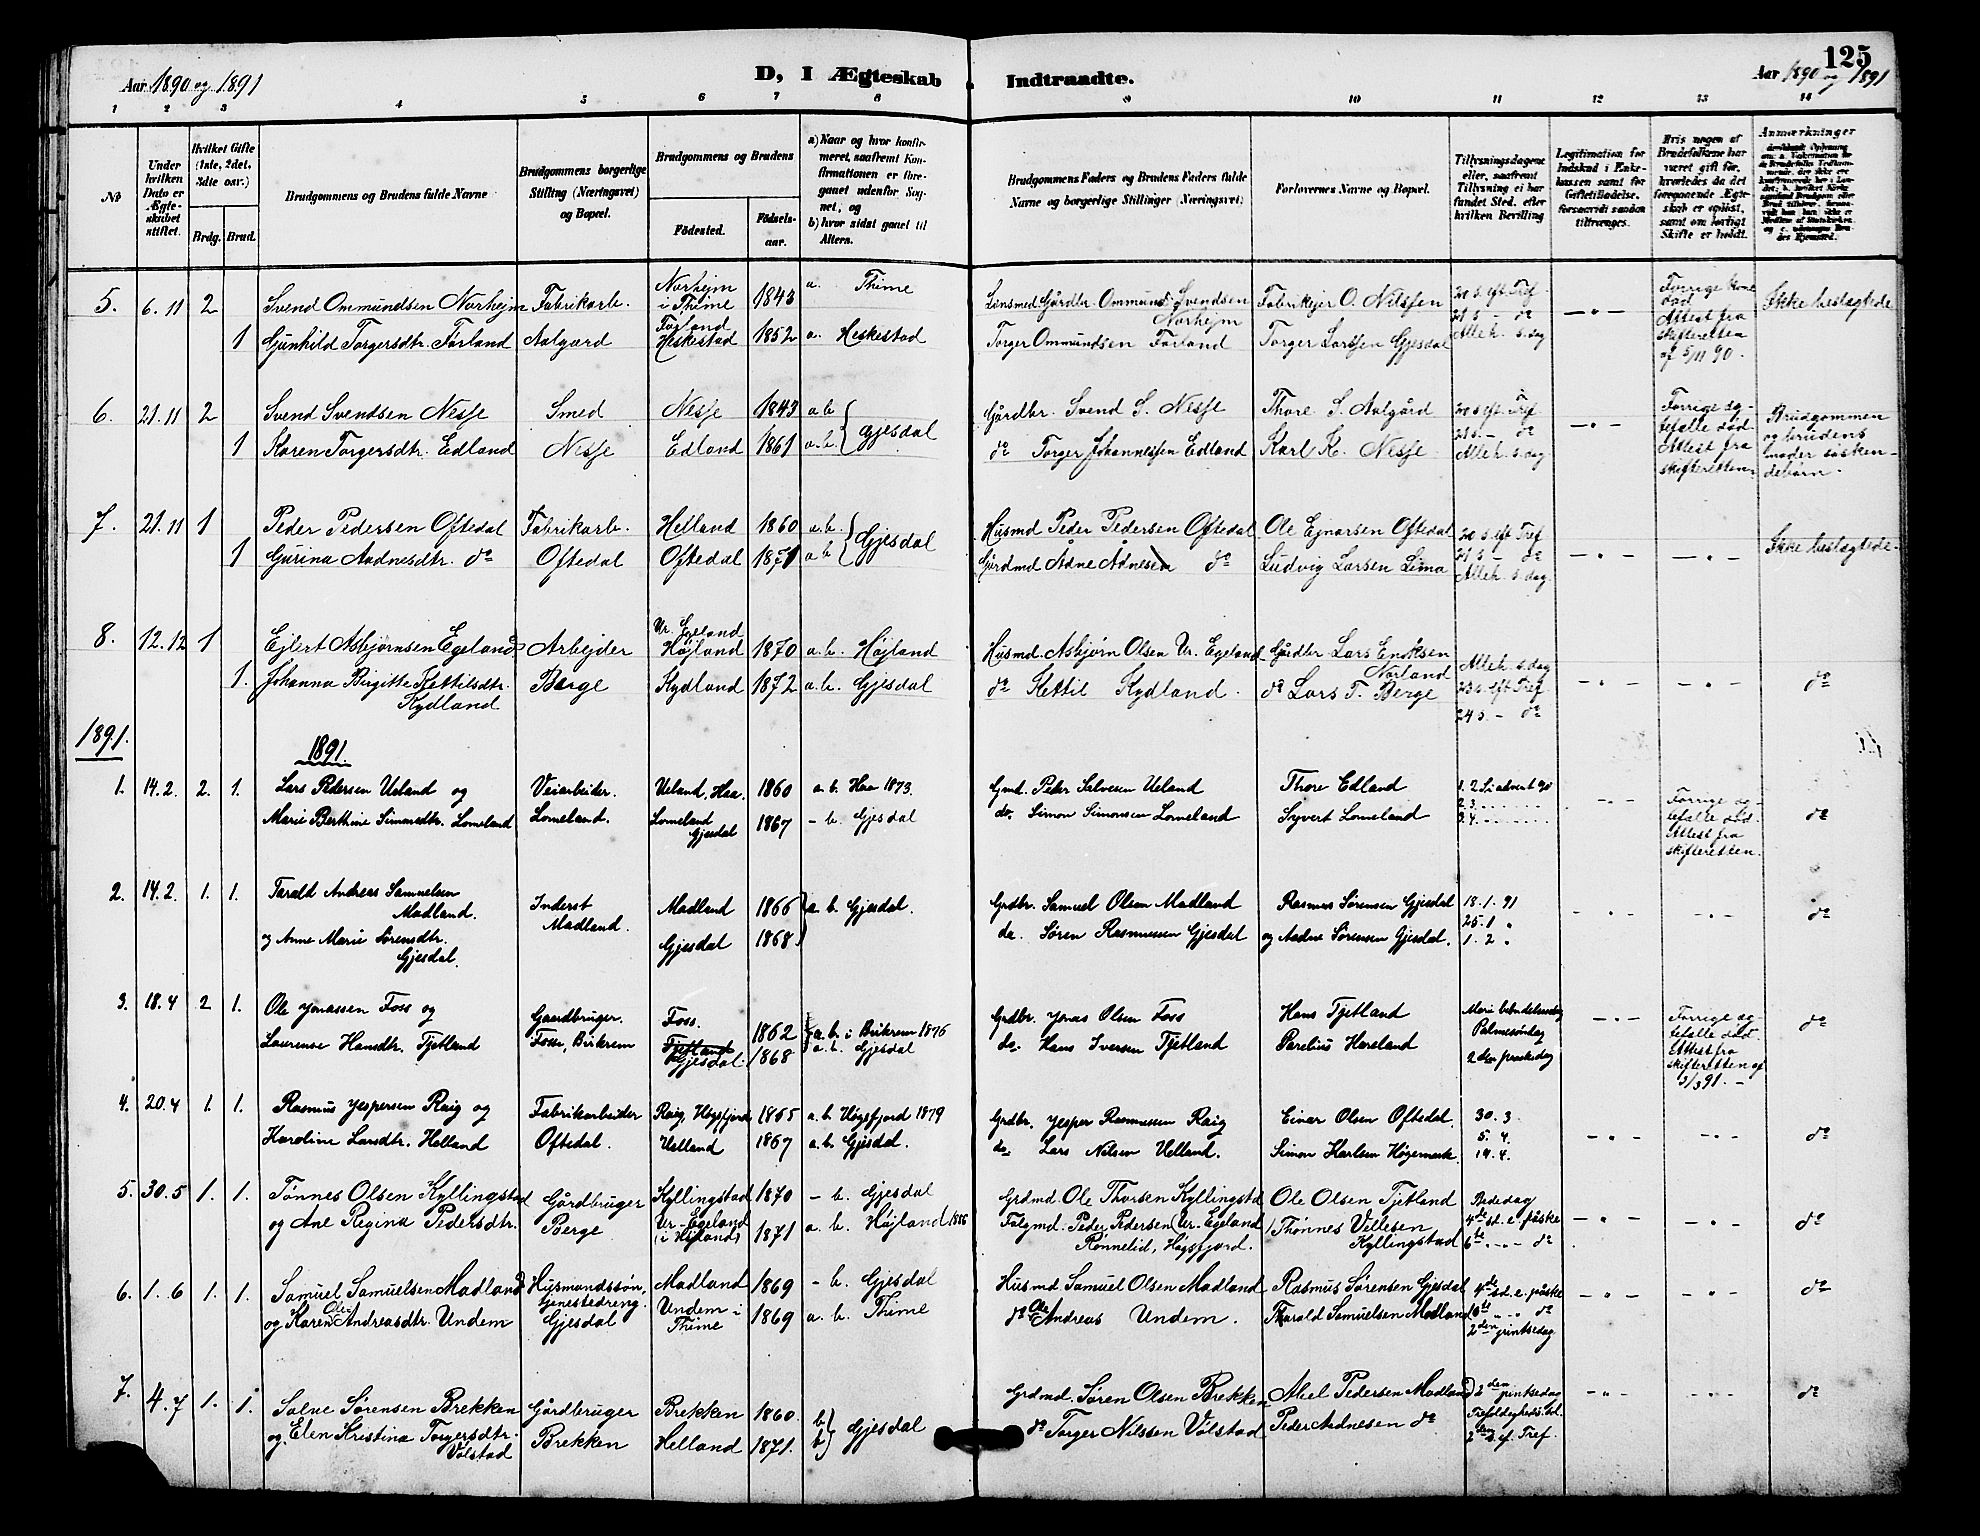 125
Aar 1890 og 1891
D, I Ægteskab
Indtraadte.
Aar 1890 og 1891
1 2 3 4 5 6 7 8 9 10 11 12 13 14
No
Under hvilken Dato er Ægteskabet stiftet.
Hvilket Gifte (1ste, 2det, 3die osv.)
Brdg. Brud.
Brudgommens og Brudens fulde Navne
Brudgommens borgerlige Stilling (Næringsvei) og Bopæl.
Brudgommens og Brudens
Födested.
Födselsaar.
a) Naar og hvor konfirmeret, saafremt Konfirmationen er foregaaet udenfor Sognet, og
b) hvor sidst gaaet til Alters.
Brudgommens Faders og Brudens Faders fulde Navne og borgerlige Stillinger (Næringsvei)
Forlovernes Navne og Bopæl.
Tillysningsdagene eller, saafremt Tillysning ei har fundet Sted, efter hvilken Bevilling
Legitimation for Indskud i Enkekassen samt for Giftetilladelse, forsaavidt saadan tiltrænges.
Hvis nogen af Brudefolkene har været gift før, hvorledes da det foregaaende Ægteskab er oplöst, samt om lovligt Skifte er holdt.
Anmærkninger
5. 6.11 2 Svend Ommundsen Norheim Fabrikarb. Norheim i Thime 1843 a. Thime
Gårdbr. Ommund Svendsen Norheim Fabrikejer O. Nilssen 20 s. eft. Tref.
1 Gunhild Torgersdtr. Førland Aalgaard Førland Heskestad 1852 a. Heskestad
Torger Ommundsen Førland Torger Larssen Gjesdal 21 s. - do Alleh. s. dag
- " - Forrige kone død Attest fra skifteretten af 5/11 90. Ikke beslægtede
6. 21.11 2 Svend Svendsen Nesse Smed Nesse 1843 a b
Gårdbr. Svend S. Nesse Thore S. Aalgård 20 s eft. Tref.
1 Karen Torgersdtr. Edland Nesse Edland 1861 a. b. Gjesdal
do Torger Johannessen Edland Karl K. Nesse 21 s. - do Alleh. s. dag
- " - Forrige æg-tefælle død. Attest fra skifteretten. Brudgommen og brudens moder søsken-debørn.
7. 21.11 1 Peder Pedersen Oftedal Fabrikarb. Helland 1860 a. b.
Husmd Peder Pedersen Oftedal Ole Ejnarsen Oftedal 20 s. eft Tref
1 Gurina Aadnesdtr. do Oftedal Oftedal 1871 a b Gjesdal
Gårdmd Ådne Ådnesen do Ludvig Larsen Lima 21 s - do Alleh. s. dag.
- " - - " - Ikke beslægtede.
8. 12.12 1 Ejlert Asbjørnsen Egeland Arbejder Ur. Egeland Højland 1870 a. b. Højland
Husmd. Asbjørn Olsen Ur. Egeland Gårdbr Lars Eriksen Norland Alleh. s. dag
1. Johanna Birgitte Kettilsdtr. Kydland Berge Kydland 1872 a. b. Gjesdal
do Kettil Kydland. do Lars T. Berge 23 s. eft Tref. 24 s. - do
- " - - " - do
1891.
1891.
1. 14.2. 2. 1. Lars Pedersen Ueland og Veiarbeider. Ueland, Haa. 1860 a. b. Haa 1873.
Gmd. Peder Salvesen Ueland Thore Edland 1. 2 S. i advent 90
Marie Berthine Simonsdtr. Lomeland Lomeland. Lomeland Gjesdal 1867 - b. Gjesdal
do. Simon Simonsen Lomeland Syvert Lomeland 2 3. 3 4.
- " - Forrige æg-tefælle død. Attest fra skifteretten. do
2. 14.2. 1. 1. Tarald Andreas Samuelsen Madland. Inderst Madland. Madland 1866 a. b. Gjesdal.
Grdbr. Samuel Olsen Madland Rasmus Sørensen Gjesdal 18.1.91
og Anne Marie Sørensdtr. Gjesdal. Gjesdal 1868
do. Søren Rasmussen Gjesdal og Aadne Sørensen Gjesdal. 25.1 " 1.2 "
- " - - " - do
3. 18.4 2 1. Ole Jonassen Foss og Gaardbruger. Foss. 1862 a. b. i Birkrem 1876
Grdbr. Jonas Olsen Foss Hans Tjetland Marie bebudelsesdag
Laurense Hansdtr. Tjetland Fosse, Birkrem Tjetland Gjesdal. 1868 a. b. Gjesdal
do. Hans Iversen Tjetland Parelius Haveland Palmesøndag 2 den paaskedag
- " - Forrige æg-tefælle død. Attest fra skifteretten af 3/3 91. - do
4. 20.4 1. 1. Rasmus Jespersen Raig og Fabrikarbeider Raig, Høgsfjord 1865 a. b. Høgsfjord 1879
Grdbr. Jesper Rasmussen Raig Einar Olsen Oftedal. 30.3.
Karoline Larsdtr. Helland Oftedal. Uelland 1867 a. b. Gjesdal.
do. Lars Nilsen Uelland. Simon Karlsen Høgemark. 5.4. 14.4.
- " - - " - do
5. 30.5 1. 1. Tønnes Olsen Kyllingstad Gårdbruger Kyllingstad 1870 - b. Gjesdal
Grdmd Ole Thorsen Kyllingstd Ole Olsen Tjetland Bededag
og Ane Regina Pedersdtr. Berge Ur-Egeland (i Højland) 1871 a. b. Højland 1886
Pedersen (Ur. Egeland Rønnelid, Høgsfjord. Thønnes Villesen Kyllingstad 4de sd. e. påske 6te " - - do
- " - - " - do
6. 1.6 1. 1. Samuel Samuelsen Madland Husmandssøn, Madland 1869 - b. Gjesdal
Husmd Samuel Olsen Madland Rasmus Sørensen Gjesdal 4de sd. e. påske
og Karen Ole Andreasdtr. Undem Tjenestedreng. Gjesdal Undem i Thime 1869 a. b. Thime
do Ole Andreas Undem. Tharald Samuelsen Madland " " do 2den pintsedag
- " - - " - do
7. 4.7 1. 1. Salve Sørensen Brekken Gårdbruger Brekken 1860. b
Grdmd. Søren Olsen Brekken Abel Pedersen Madland 2den pintsedag
og Elen Kristina Torgersdtr. Volstad Brekken Helland 1871. b Gjesdal
do Torger Nilssen Volstad Peder Aadnesen do Trefoldigheds. 2den s. ef. Tref.
- " - - " - do